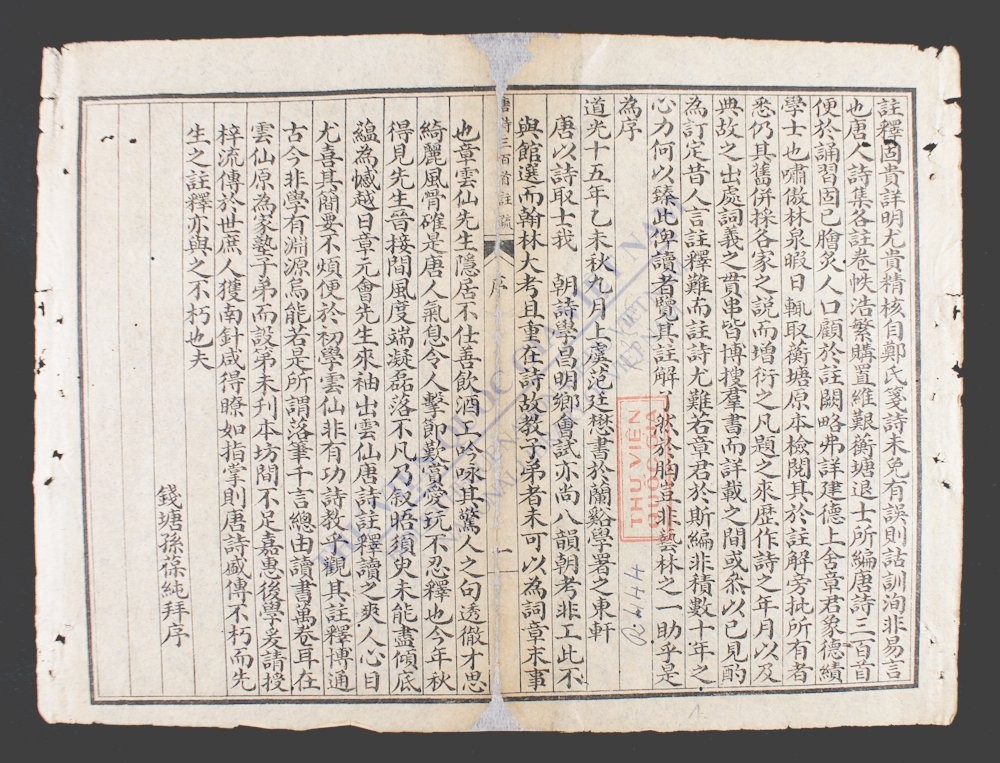 註釋固貴詳明尤貴精核自鄭氏箋詩未免有誤則詁訓洵非易言
也唐人詩集各註卷帙浩繁購置維艱蘅塘退士所編唐詩三百首
便於誦習固已膾炙人口顧於註闕略弗詳建德上舍章君象德績
學士也嘯傲林泉暇日輒取蘅塘原本檢閱其於註解旁批所有者
悉仍其舊併採各家之説而增衍之凡題之來歴作詩之年月以及
典故之出處詞義之貫串皆博搜羣書而詳載之間或叅以已見酌
為訂定昔人言註釋難而註詩尤難若章君於斯編非積數十年之
心力何以臻此俾讀者覽其註解了然於胸豈非藝林之一助乎是
為序
道光十五年乙未秋九月上虞范廷懋書於蘭谿學署之東軒
唐以詩取士我　朝詩學昌明鄉會試亦尚八韻朝考非工此不
與館選而翰林大考且重在詩故教子弟者未可以為詞章末事
唐詩三百首註疏　序　一
也章雲仙先生隱居不仕善飲酒工吟咏其驚人之句透徹才思
綺麗風骨確是唐人氣息令人擊節歎賞愛玩不忍釋也今年秋
得見先生晉接間風度端凝磊落不凡乃叙晤須臾未能盡傾底
藴為憾越日章元會先生來袖出雲仙唐詩註釋讀之爽人心目
尤喜其簡要不煩便於初學雲仙非有功詩教乎觀其註釋博通
古今非學有淵源烏能若是所謂落筆千言總由讀書萬卷耳在
雲仙原為家塾子弟而設第未刋本坊間不足嘉惠後學爰請授
梓流傳於世庶人獲南針咸得瞭如指掌則唐詩盛傳不朽而先
生之註釋亦與之不朽也夫
錢塘孫保純拜序
THƯ VIỆN
QUỐC GIA